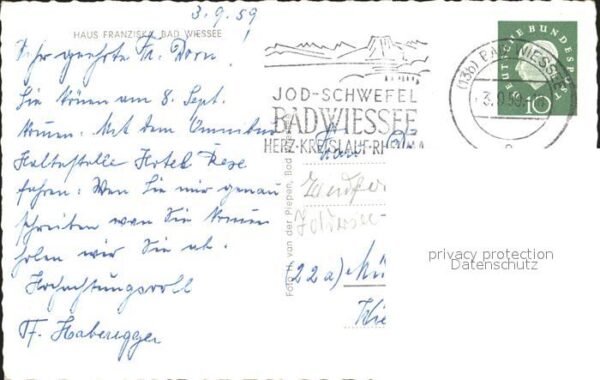 3.9.59
HAUS FRANZISKA BAD WIESSEE
Sehr geehrte Fr. Dorn!
Sie können am 8. Sept.
kommen. Mit dem Omnibus
Haltestelle Hotel Rese
fahren. Wen Sie mir genau
schreiben wan Sie kommen
holen wir Sie ab.
Hochachtungsvoll
Fr. Haberegger
JOD-SCHWEFEL
BAD WIESSEE
HERZ-KREISLAUF-RH
(13b) BAD WIESSEE
3.9.59
DEUTSCHE BUNDESPOST
10
Foto H. van der Piepen, Bad
22a) Mü
privacy protection
Datenschutz